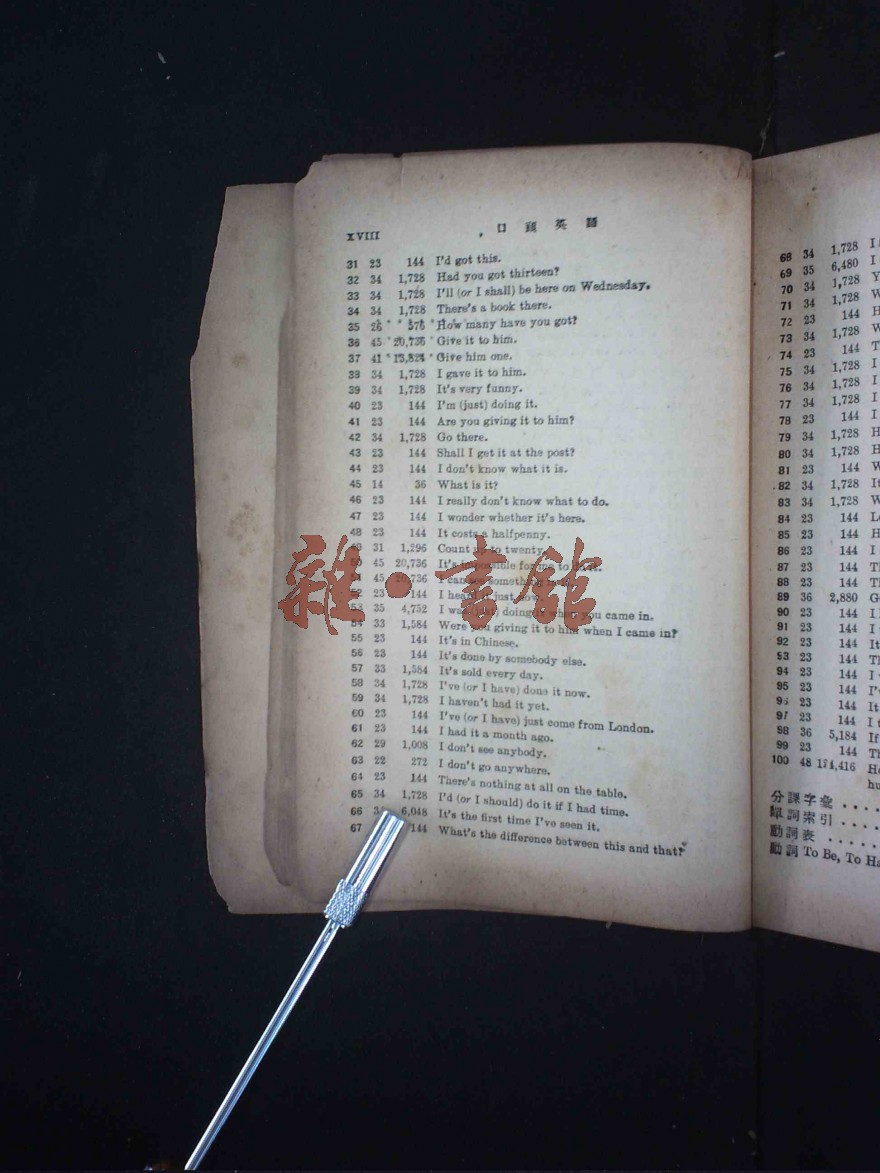 XVIII 口頭英語
31 23 144 I'd got this.
32 34 1,728 Had you got thirteen?
33 34 1,728 I'll (or I shall) be here on Wednesday.
34 34 1,728 There's a book there.
35 26 576 How many have you got?
36 45 20,736 Give it to him.
37 41 13,824 Give him one.
38 34 1,728 I gave it to him.
39 34 1,728 It's very funny.
40 23 144 I'm (just) doing it.
41 23 144 Are you giving it to him?
42 34 1,728 Go there.
43 23 144 Shall I get it at the post?
44 23 144 I don't know what it is.
45 14 36 What is it?
46 23 144 I really don't know what to do.
47 23 144 I wonder whether it's here.
48 23 144 It costs a halfpenny.
49 31 1,296 Count up to twenty.
50 45 20,736 It's impossible for me to do it.
51 45 20,736 I can see something
52 23 144 I heard it just now.
53 35 4,752 I was doing it when you came in.
54 33 1,584 Were you giving it to him when I came in?
55 23 144 It's in Chinese.
56 23 144 It's done by somebody else.
57 33 1,584 It's sold every day.
58 34 1,728 I've (or I have) done it now.
59 34 1,728 I haven't had it yet.
60 23 144 I've (or I have) just come from London.
61 23 144 I had it a month ago.
62 29 1,008 I don't see anybody.
63 22 272 I don't go anywhere.
64 23 144 There's nothing at all on the table.
65 34 1,728 I'd (or I should) do it if I had time.
66 6,048 It's the first time I've seen it.
67 144 What's the difference between this and that?
68 34 1,728 I
69 35 6,480 I
70 34 1,728 Y
71 34 1,728 W
72 23 144 H
73 34 1,728 W
74 23 144 T
75 34 1,728 I
76 34 1,728 I
77 34 1,728 I
78 23 144 I
79 34 1,728 H
80 34 1,728 H
81 23 144 W
82 34 1,728 It
83 34 1,728 W
84 23 144
85 23 144 H
86 23 144 I
87 23 144 Th
88 23 144 Th
89 36 2,880
90 23 144 I
91 23 144 I
92 23 144 It
93 23 144 Th
94 23 144 I
95 23 144 I'
96 23 144 It
97 23 144 I t
98 36 5,184 If
99 23 144 Th
100 48 184,416 He
hu
分課字彙 . . . .
單詞索引 . . . .
動詞表 . . . . .
動詞 To Be, To Ha
雜·書館